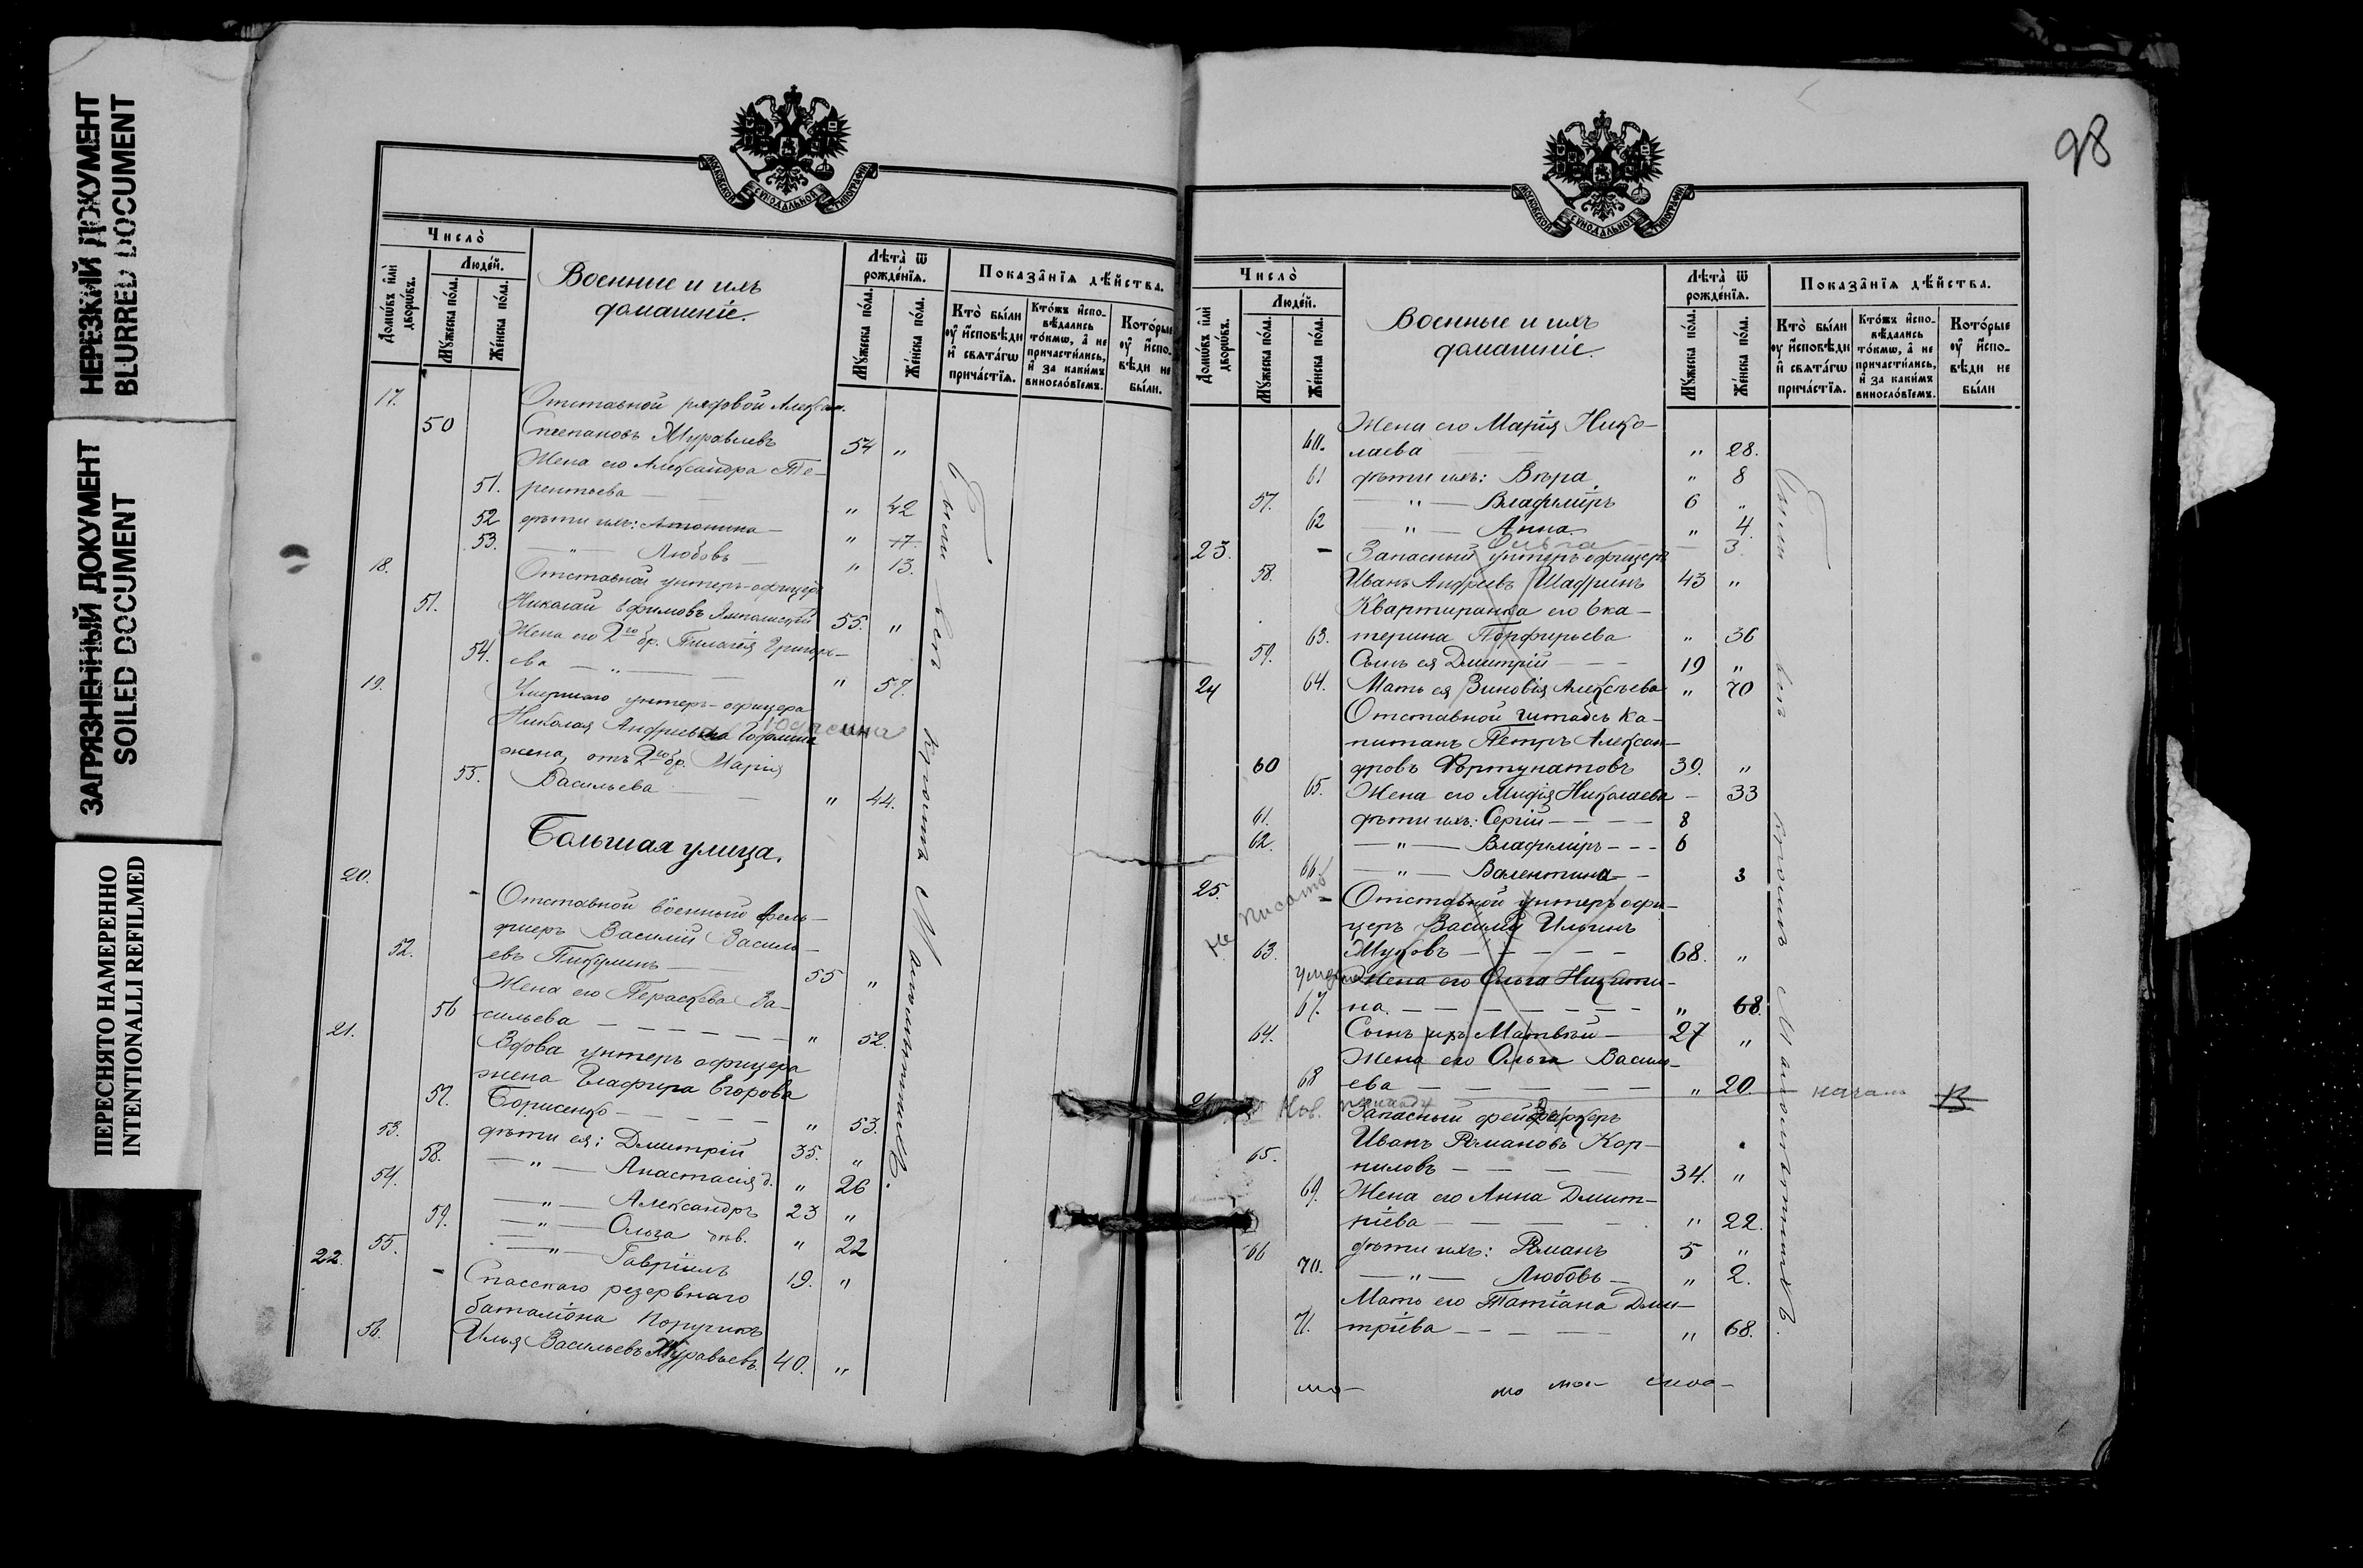 НЕРЕЗКИЙ ДОКУМЕНТ
BLURRED DOCUMENT
ЗАГРЯЗНЕННЫЙ ДОКУМЕНТ
SOILED DOCUMENT
ПЕРЕСНЯТО НАМЕРЕННО
INTENTIONALLI REFILMED
МОСКОВСКОЙ СѴНОДАЛЬНОЙ ТИПОГРАФІИ
Число̀
Домѡ́въ и҆лѝ дворѡ́въ.
Люде́й.
Мꙋ́жеска по́ла.
Же́нска по́ла.
Военные и ихъ
домашніе.
Лѣта̀ ѿ рожде́нїѧ.
Мꙋ́жеска по́ла.
Же́нска по́ла.
Показа̑нїѧ дѣ́йства.
Кто̀ бы́ли ᲂу҆ и҆сповѣди и҆ свѧта́гѡ прича́стїѧ.
Кто́жъ и҆спо-вѣдались то́кмѡ, а҆ не причасти́лись, и҆ за каки́мъ винносло́вїемъ.
Кото́рые ᲂу҆ и҆спо-вѣди не бы́ли.
17. Отставной рядовой Алексан.
50 Степановъ Муравьевъ 54 "
Жена его Александра Те-
51. рентьева — " 42
52 дѣти ихъ: Антонина — " 17.
53. — " — Любовь — " 13.
18. Отставной унтеръ-офицеръ
51. Николай Ефимовъ 55. "
Жена его 2го бр. Пелагея Григорь-
54. ева — " — " 57.
19. Умершаго унтеръ-офицера
Николая Андреева
жена, отъ 2го бр. Марія
55. Васильева — " 44.
Большая улица.
20. - Отставной военный фель-
дшеръ Василій Василь-
52. евъ Пикулинъ — 55 "
Жена его Параскева Ва-
56 сильева — — — " 52.
21. Вдова унтеръ офицера
жена Глафира Егорова
57. Борисенко — — — " 53.
53. дѣти ея: Дмитрій 35. "
58. — " — Анастасія д. " 26
54. — " — Александръ 23 "
59. — " — Ольга дѣв. " 22
55. — " — Гавріилъ 19. "
22. - Спасскаго резервнаго
баталіона Поручикъ
56. Илья Васильевъ Журавьевъ 40. "
98
МОСКОВСКОЙ СѴНОДАЛЬНОЙ ТИПОГРАФІИ
Число̀
Домѡ́въ и҆лѝ дворѡ́въ.
Люде́й.
Мꙋ́жеска по́ла.
Же́нска по́ла.
Военные и ихъ
домашніе.
Лѣта̀ ѿ рожде́нїѧ.
Мꙋ́жеска по́ла.
Же́нска по́ла.
Показа̑нїѧ дѣ́йства.
Кто̀ бы́ли ᲂу҆ и҆сповѣди и҆ свѧта́гѡ прича́стїѧ.
Кто́жъ и҆спо-вѣдались то́кмѡ, а҆ не причасти́лись, и҆ за каки́мъ винносло́вїемъ.
Кото́рые ᲂу҆ и҆спо-вѣди не бы́ли
Жена его Марія Нико-
60. лаева " 28.
61 дѣти ихъ: Вѣра " 8
57. — " — Владиміръ 6 "
62 — " — Анна " 4.
Ольга — 3.
23. - Запасный унтеръ-офицеръ
58. Иванъ Андреевъ Шадринъ 43 "
Квартиранка его Ека-
63. терина Порфирьева " 36
59. Сынъ ея Дмитрій — — 19 "
24 64. Мать ея Зиновія Алексѣева " 70
Отставной штабсъ ка-
питанъ Петръ Алексан-
60 дровъ Фортунатовъ 39. "
65. Жена его Лидія Николаева — 33
61. дѣти ихъ: Сергій — — — 8
62. — " — Владиміръ — — 6
66. — " — Валентина — 3
25. - Отставной унтеръ офи-
не писать
церъ Василій Ильинъ
63. Жуковъ — — — — 68. "
Жена его Ольга Никити-
67. на. — — — — " 68.
64. Сынъ ихъ Матвѣй — 27 "
Жена его Ольга Василь-
68 ева — — — — " 20.
Запасный фейерверкеръ
Иванъ Романовъ Кор-
65. ниловъ — — — 34. "
69. Жена его Анна Дмит-
ріева — — — " 22.
66 дѣти ихъ: Романъ 5 "
70. — " — Любовь — " 2.
Мать его Татіана Дми-
71. тріева — — — " 68.